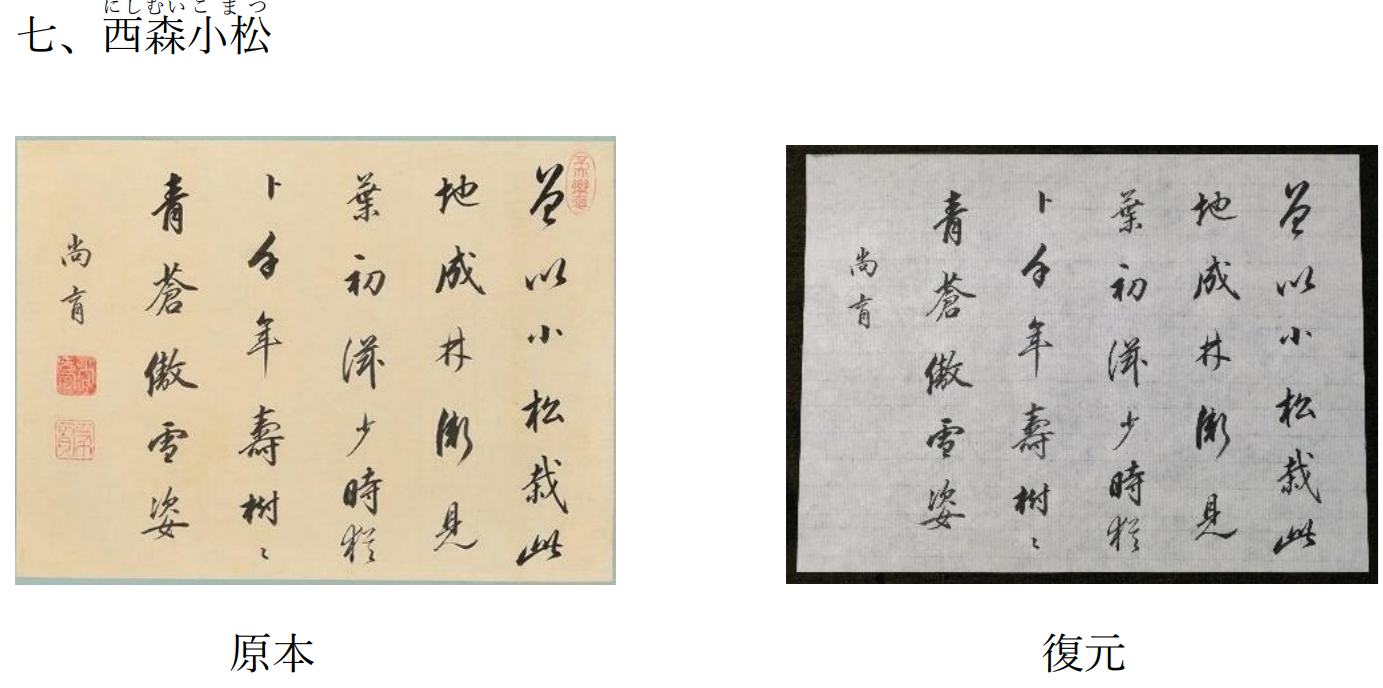 にしむいこまつ
七、西森小松
曾以小松栽此
地成林漸見
葉初滋少時
卜千年壽樹〻
青蒼傲雪姿
尚育
原本
曾以小松栽此
地成林漸見
葉初滋少時
卜千年壽樹〻
青蒼傲雪姿
尚育
復元